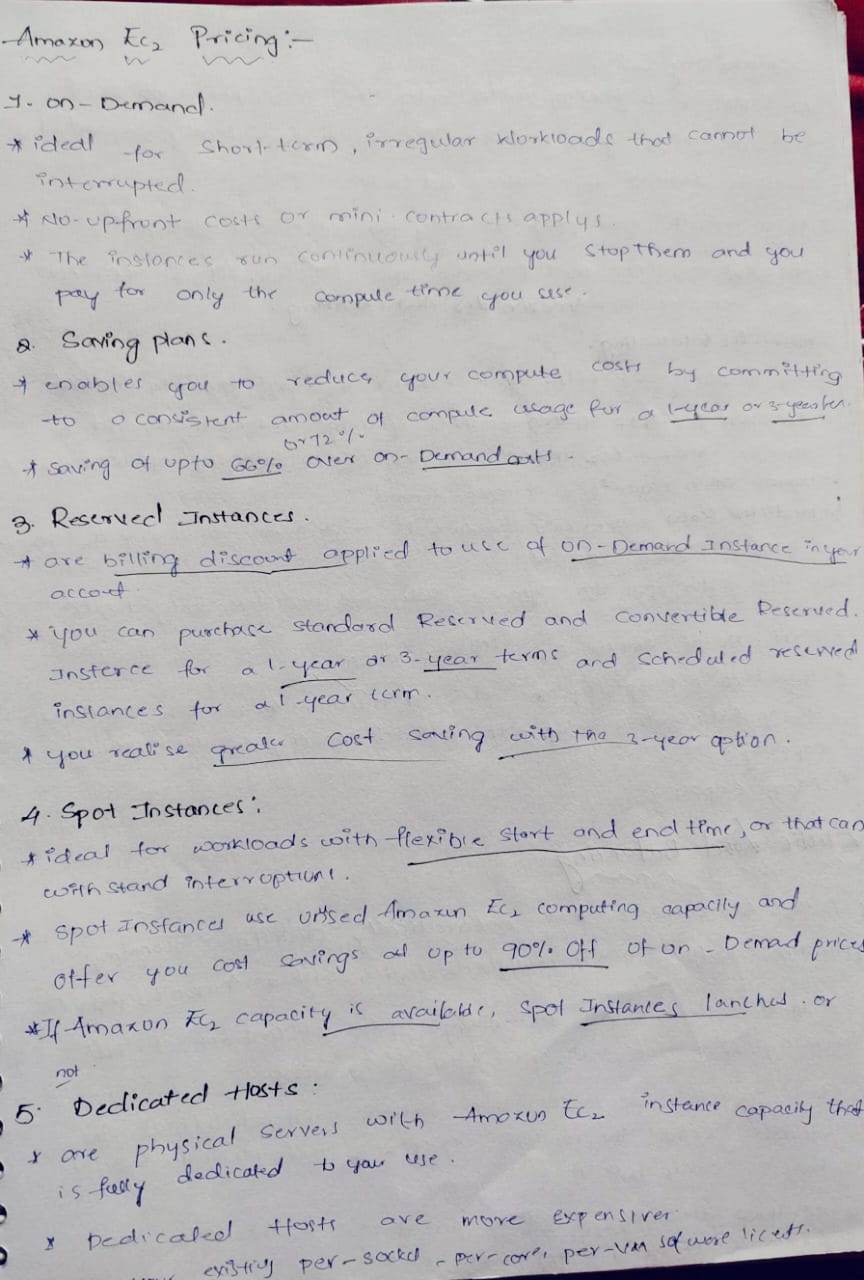 Amazon Ec2 Pricing:-
1. on-Demand.
* ideal for short-term, irregular workloads that cannot be
interrupted.
* No-upfront costs or mini contracts applys.
* The instances run continuously until you stop them and you
pay for only the compute time you use.
2. Saving plans.
* enables you to reduce your compute costs by committing
to a consistent amout of compute usage for a 1-year or 3-year
or 72%
* saving of upto 66% over on-Demand costs.
3. Reserved Instances.
* are billing discount applied to use of on-Demand Instance in your
accout
* you can purchase standard Reserved and Convertible Reserved.
Insterce for a 1-year or 3-year terms and scheduled reserved
instances for a 1-year term.
* you realise greater cost saving with the 3-year option.
4. Spot Instances:
* ideal for workloads with flexible start and end time, or that can
with stand interruptions.
* spot Instances use unused Amazon Ec2 computing capacity and
offer you cost savings at up to 90% off of on-Demad prices
* If Amazon Ec2 capacity is available, spot Instances lanched. or
not
5. Dedicated Hosts:
* are physical servers with Amazon Ec2 instance capacity that
is fully dedicated to your use.
* Dedicated Hosts are more expensiver
existing per-socket-per-core, per-VM software